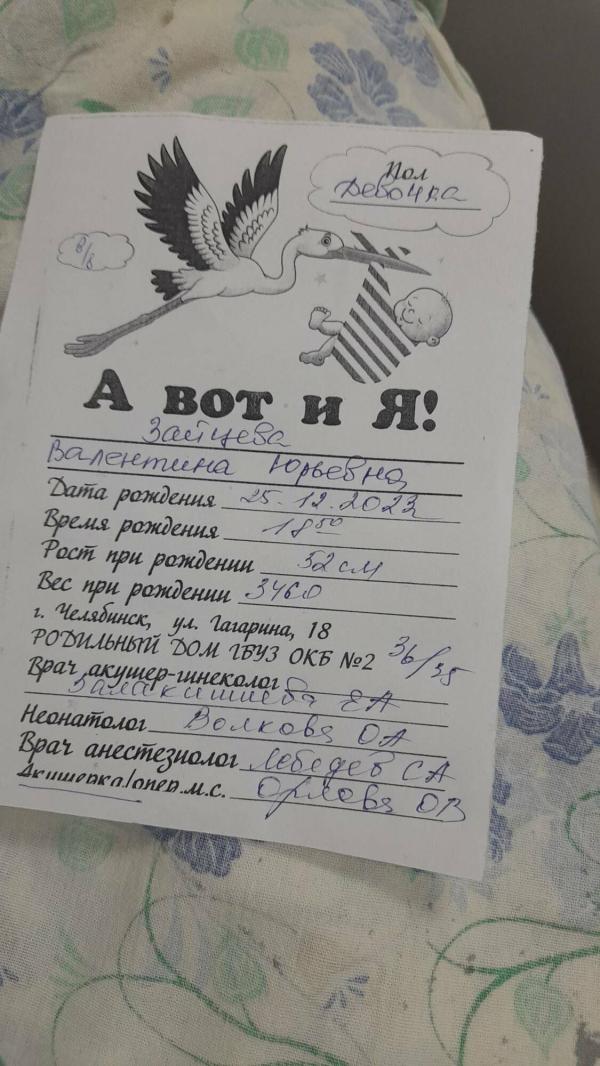 Пол
Девочка
8/8
А вот и Я!
Зайцева
Валентина Юрьевна
Дата рождения 25.12.2023
Время рождения 18 50
Рост при рождении 52 см
Вес при рождении 3460
г. Челябинск, ул. Гагарина, 18
РОДИЛЬНЫЙ ДОМ ГБУЗ ОКБ №2 36/35
Врач акушер-гинеколог
ЕА
Неонатолог Волкова ОА
Врач анестезиолог Лебедев СА
Акушерка/опер.м.с. Орлова ОВ